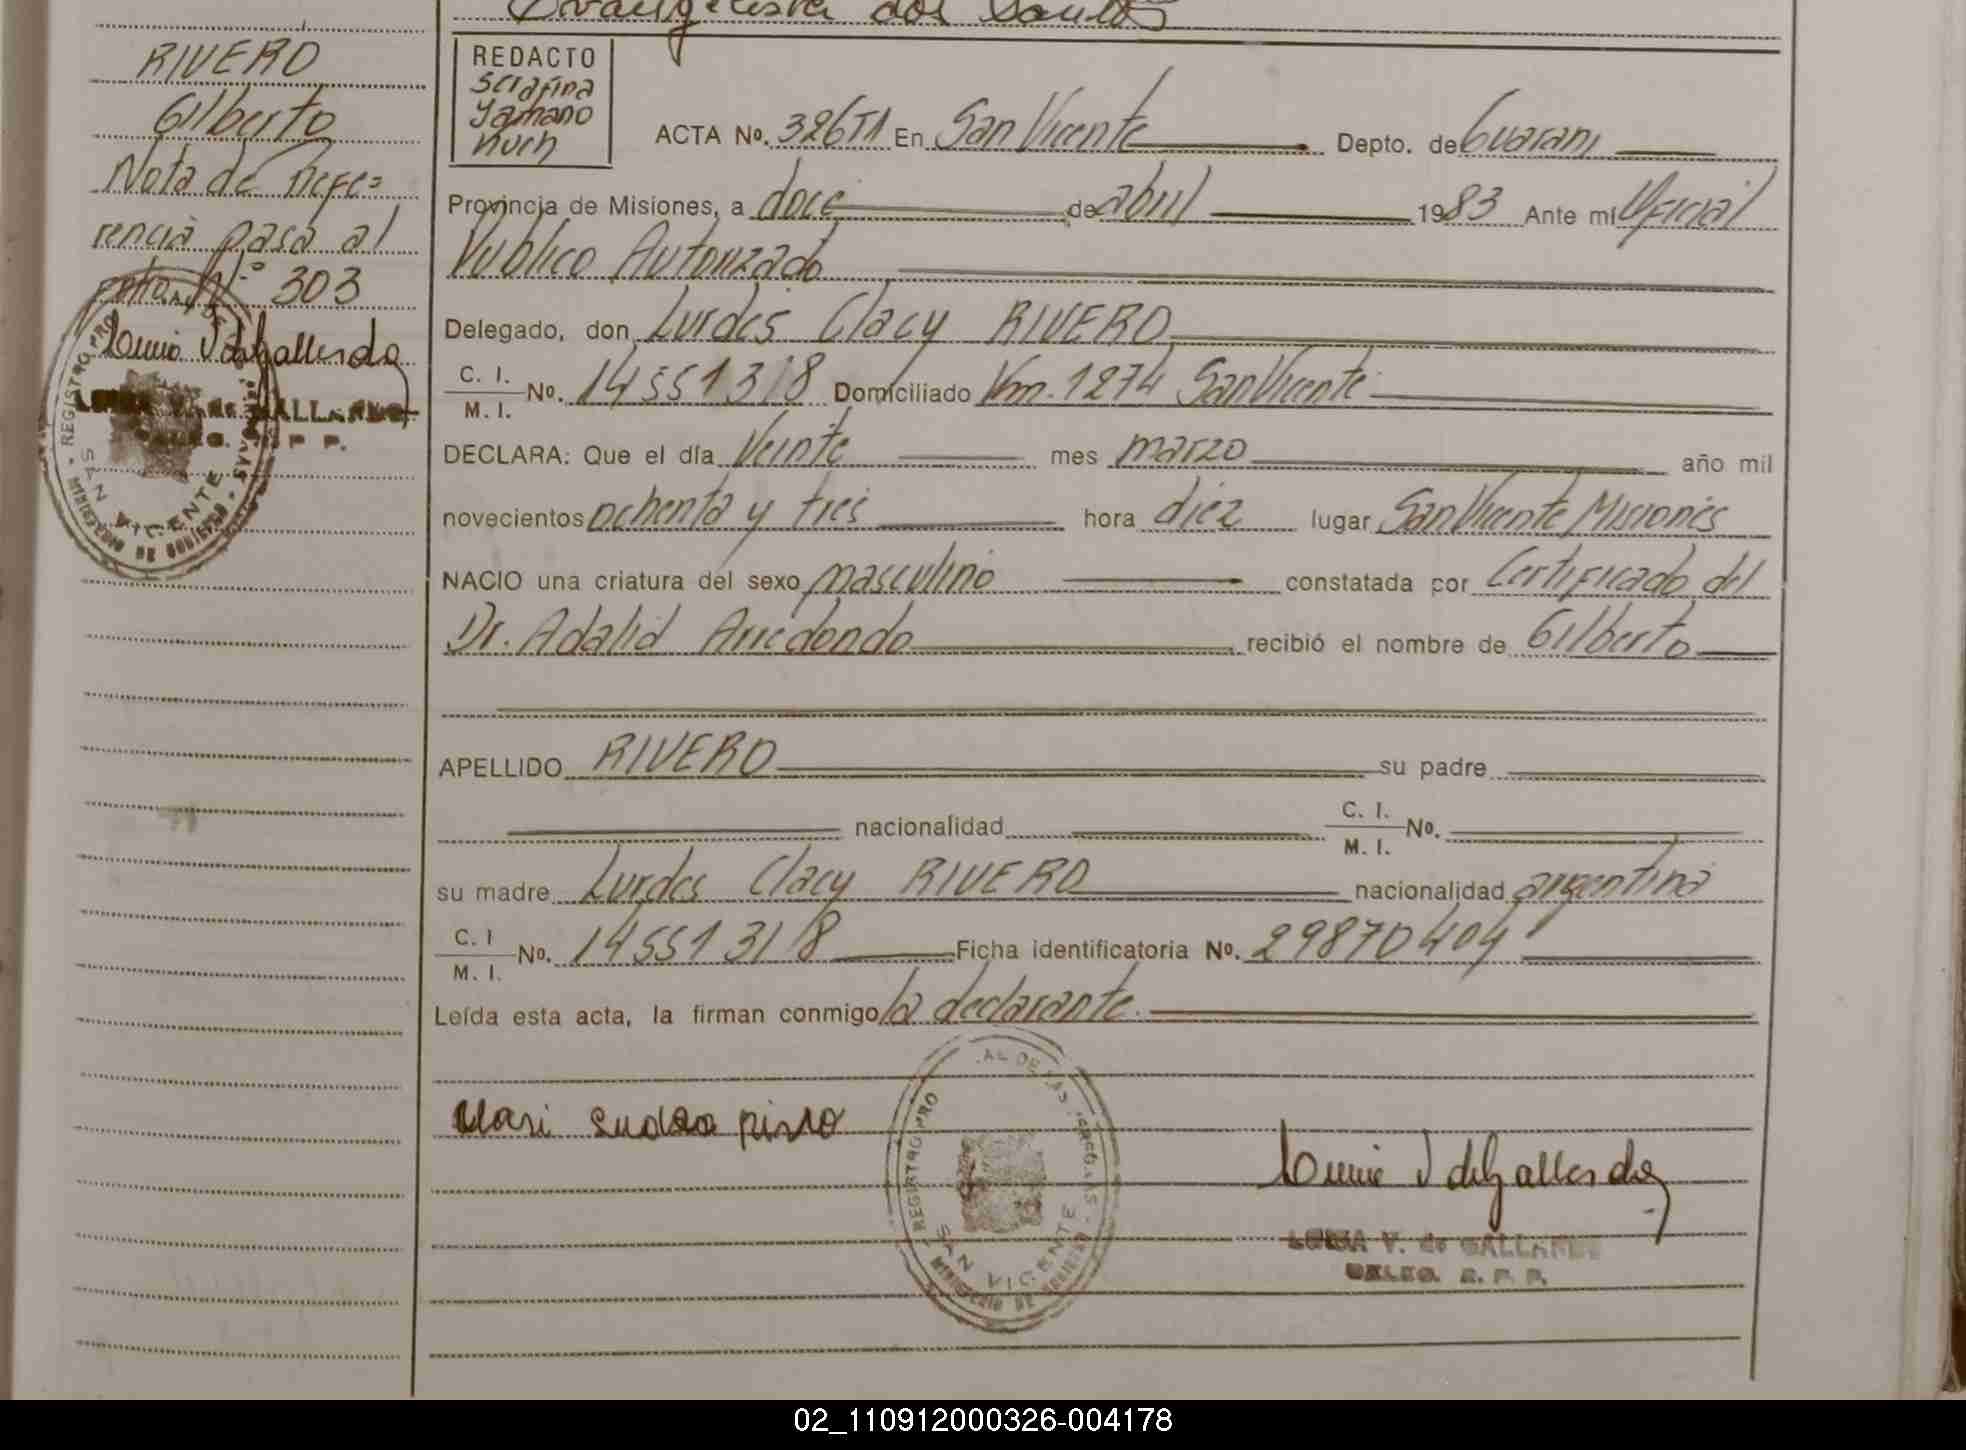 Evangelista dos Santos
RIVERO
Gilberto
Nota de Refe=
rencia pasa al
folio Nº 303
REGISTRO PRO
SAN VICENTE
MINISTERIO DE GOBIERNO
REDACTO
Serafina
Yamano
Huch
ACTA Nº. 326T1 En San Vicente Depto. de Guarani
Provincia de Misiones, a doce de abril 1983 Ante mi Oficial
Publico Autorizado
Delegado, don Lurdes Clacy RIVERO
C. I.
M. I. Nº. 14551318 Domiciliado Km. 1274 San Vicente
DECLARA: Que el día Veinte mes marzo año mil
novecientos ochenta y tres hora diez lugar San Vicente Misiones
NACIO una criatura del sexo masculino constatada por Certificado del
Dr. Adalid Arredondo recibió el nombre de Gilberto
APELLIDO RIVERO su padre
su nacionalidad C. I.
M. I. Nº.
su madre Lurdes Clacy RIVERO nacionalidad argentina
C. I
M. I. Nº. 14551318 Ficha identificatoria Nº. 29870404
Leída esta acta, la firman conmigo la declarante.
SAN VICENTE
MINISTERIO DE GOBIERNO
V. de GALLARDO
DELEG. R. P. P.
02_110912000326-004178